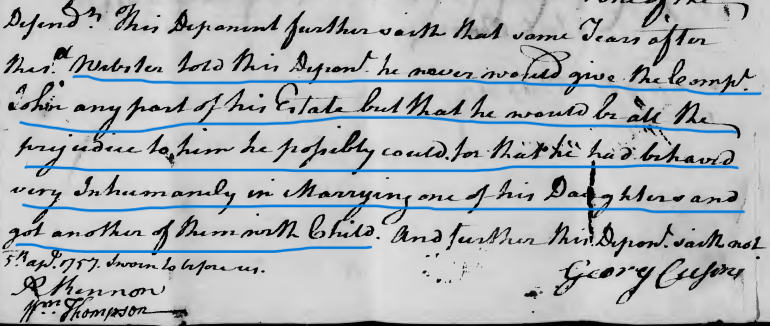 of the
Defend.ts This Deponent further saith that some Years after
the s.d Webster told this Depon.t he never would give the Comp.t
John any part of his Estate but that he would be all the
prejudice to him he possibly could. for that he had behaved
very Inhumanely in Marrying one of his Daughters and
got another of them with Child. And further this Depon.t saith not
5th apl. 1757. Sworn to before us.
R Kennon
Wm Thompson
Georg